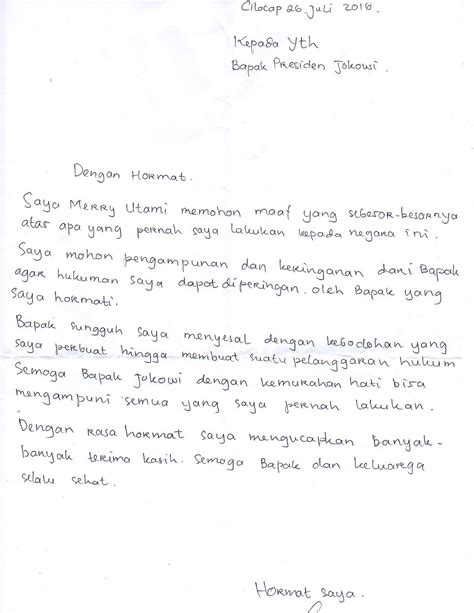 Cilacap 26 Juli 2016.
Kepada Yth
Bapak Presiden Jokowi.
Dengan Hormat.
Saya Merry Utami memohon maaf yang sebesar-besarnya
atas apa yang pernah saya lakukan kepada negara ini.
Saya mohon pengampunan dan keringanan dari Bapak
agar hukuman saya dapat diperingan. oleh Bapak yang
saya hormati.
Bapak sungguh saya menyesal dengan kebodohan yang
saya perbuat hingga membuat suatu pelanggaran hukum
Semoga Bapak Jokowi dengan kemurahan hati bisa
mengampuni semua yang saya pernah lakukan.
Dengan rasa hormat saya mengucapkan banyak-
banyak terima kasih. Semoga Bapak dan keluarega
selalu sehat.
Hormat saya.